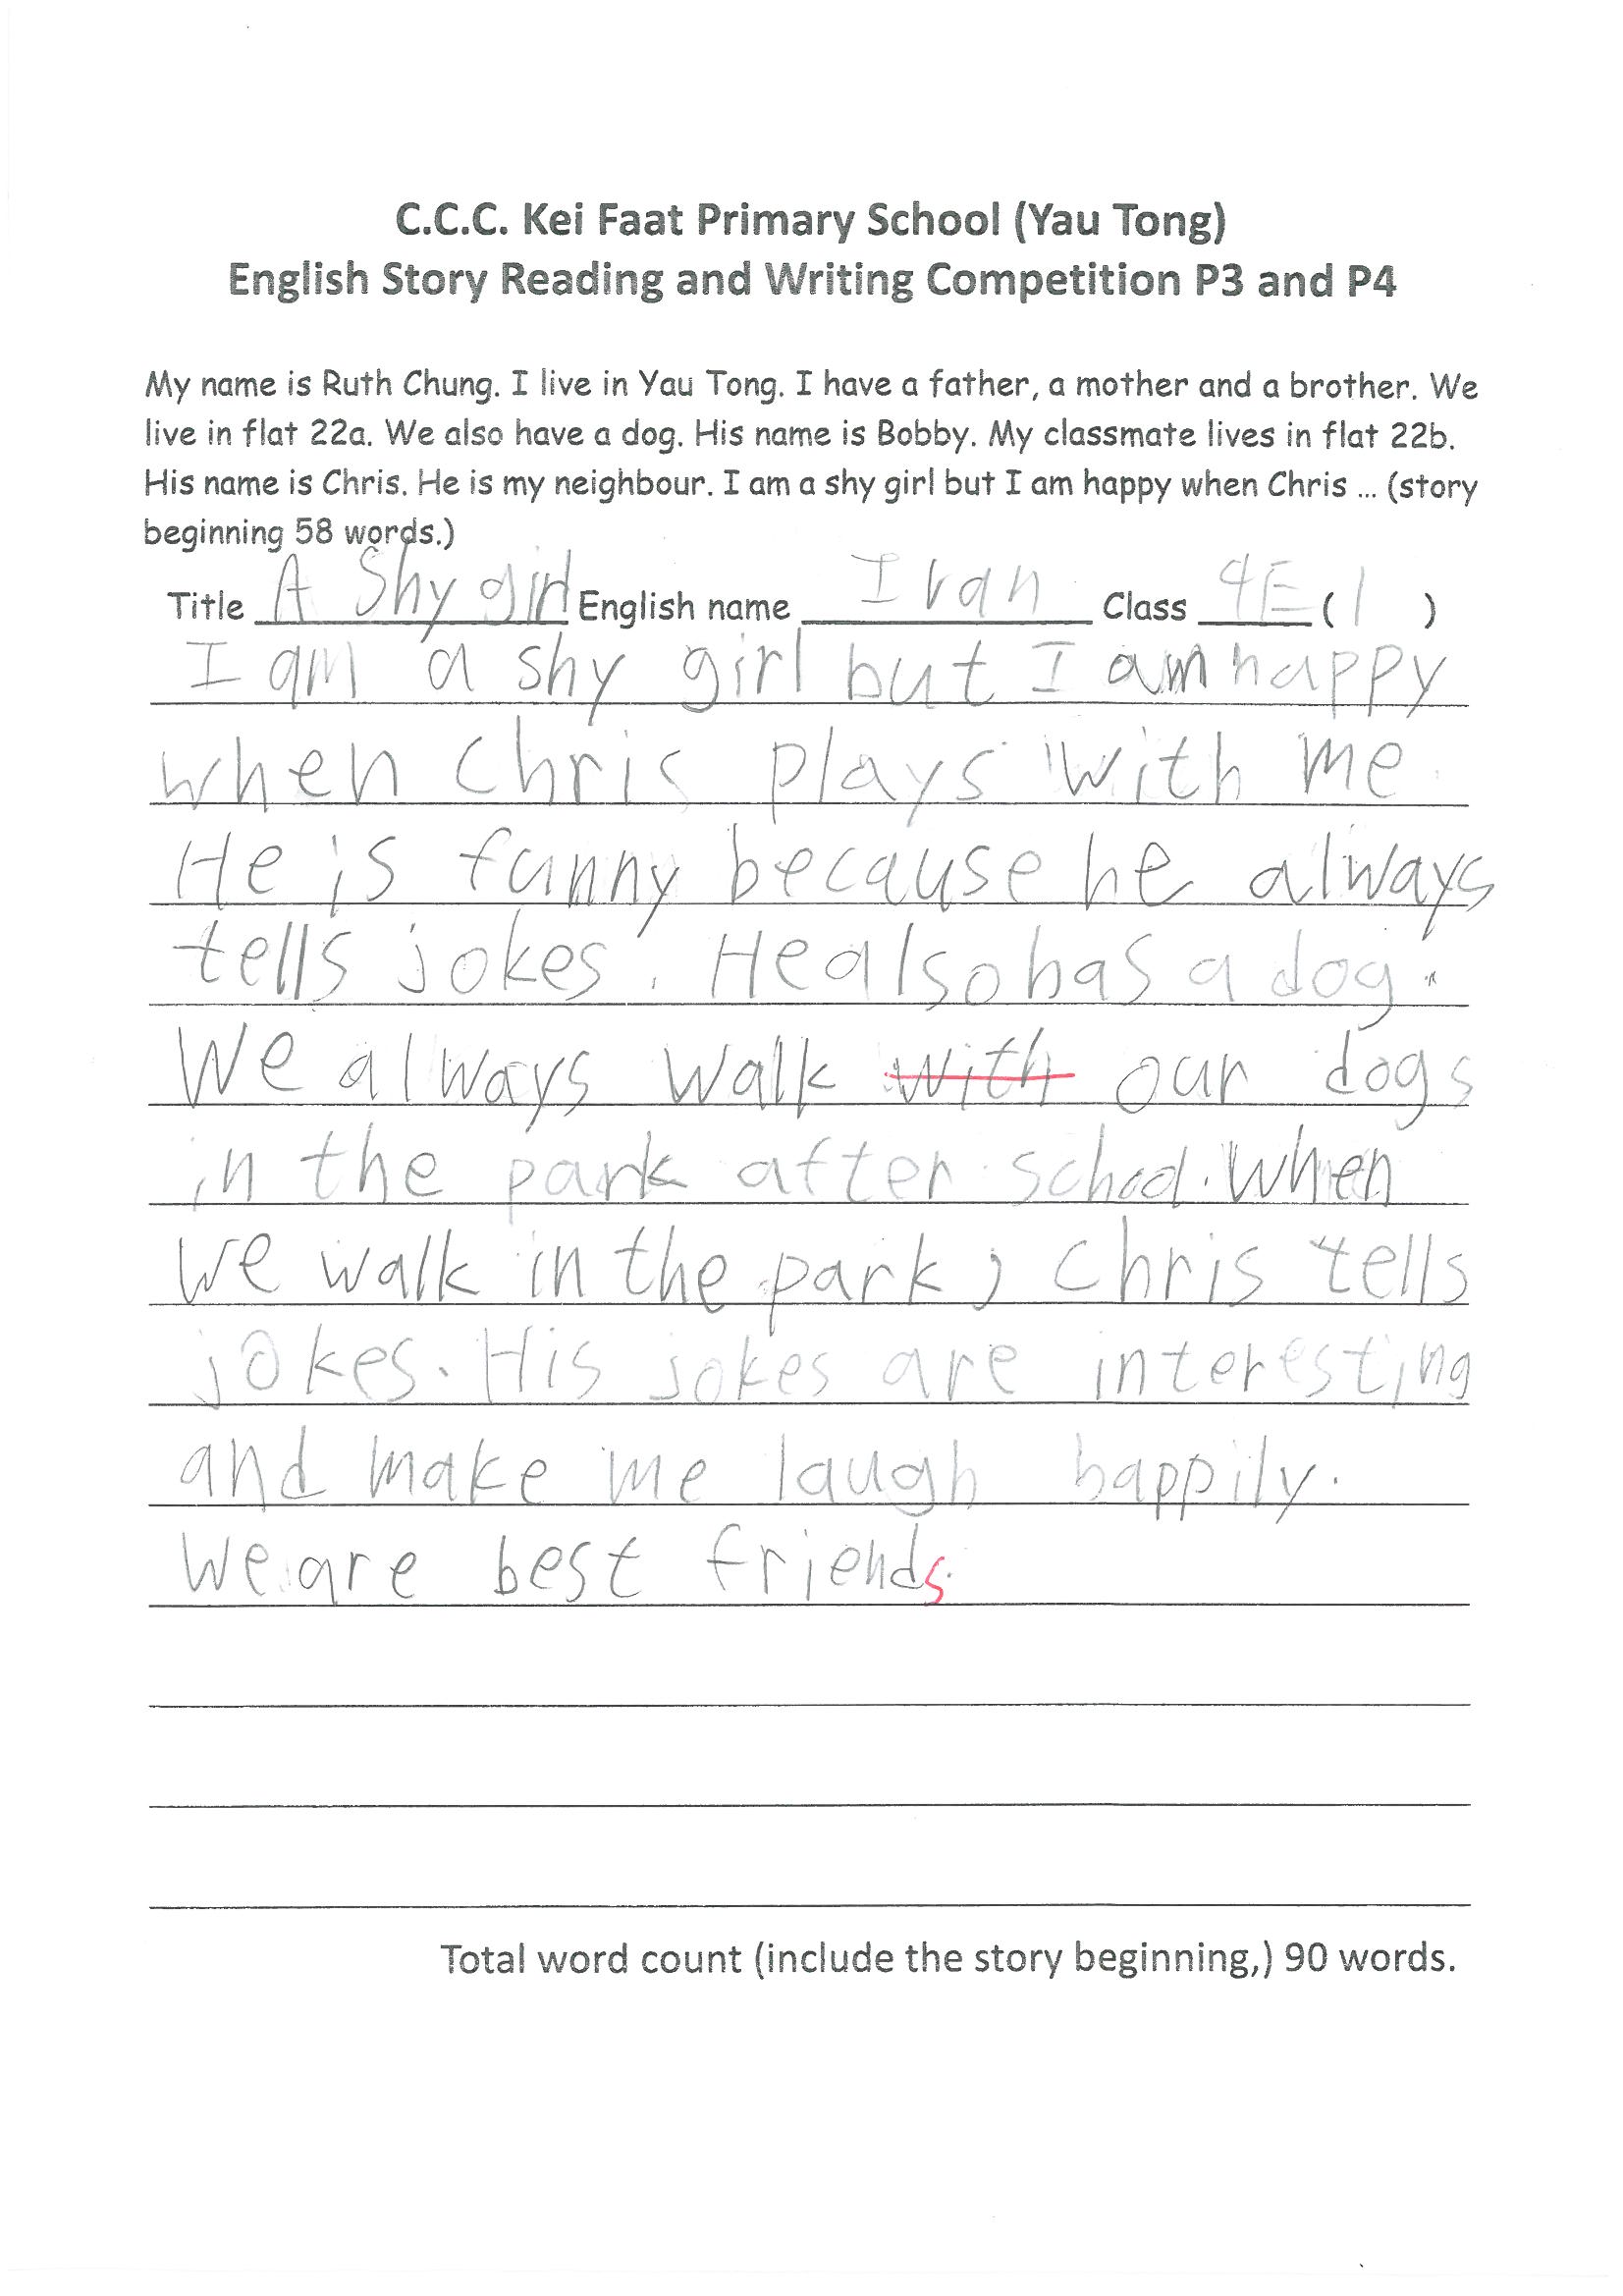 C.C.C. Kei Faat Primary School (Yau Tong)
English Story Reading and Writing Competition P3 and P4
My name is Ruth Chung. I live in Yau Tong. I have a father, a mother and a brother. We
live in flat 22a. We also have a dog. His name is Bobby. My classmate lives in flat 22b.
His name is Chris. He is my neighbour. I am a shy girl but I am happy when Chris ... (story
beginning 58 words.)
Title A Shy girl English name Ivan Class 4E (1 )
I am a shy girl but I am happy
when Chris plays with me.
He is funny because he always
tells jokes. He also has a dog.
We always walk with our dogs
in the park after school. When
we walk in the park, Chris tells
jokes. His jokes are interesting
and make me laugh happily.
We are best friends.
Total word count (include the story beginning,) 90 words.